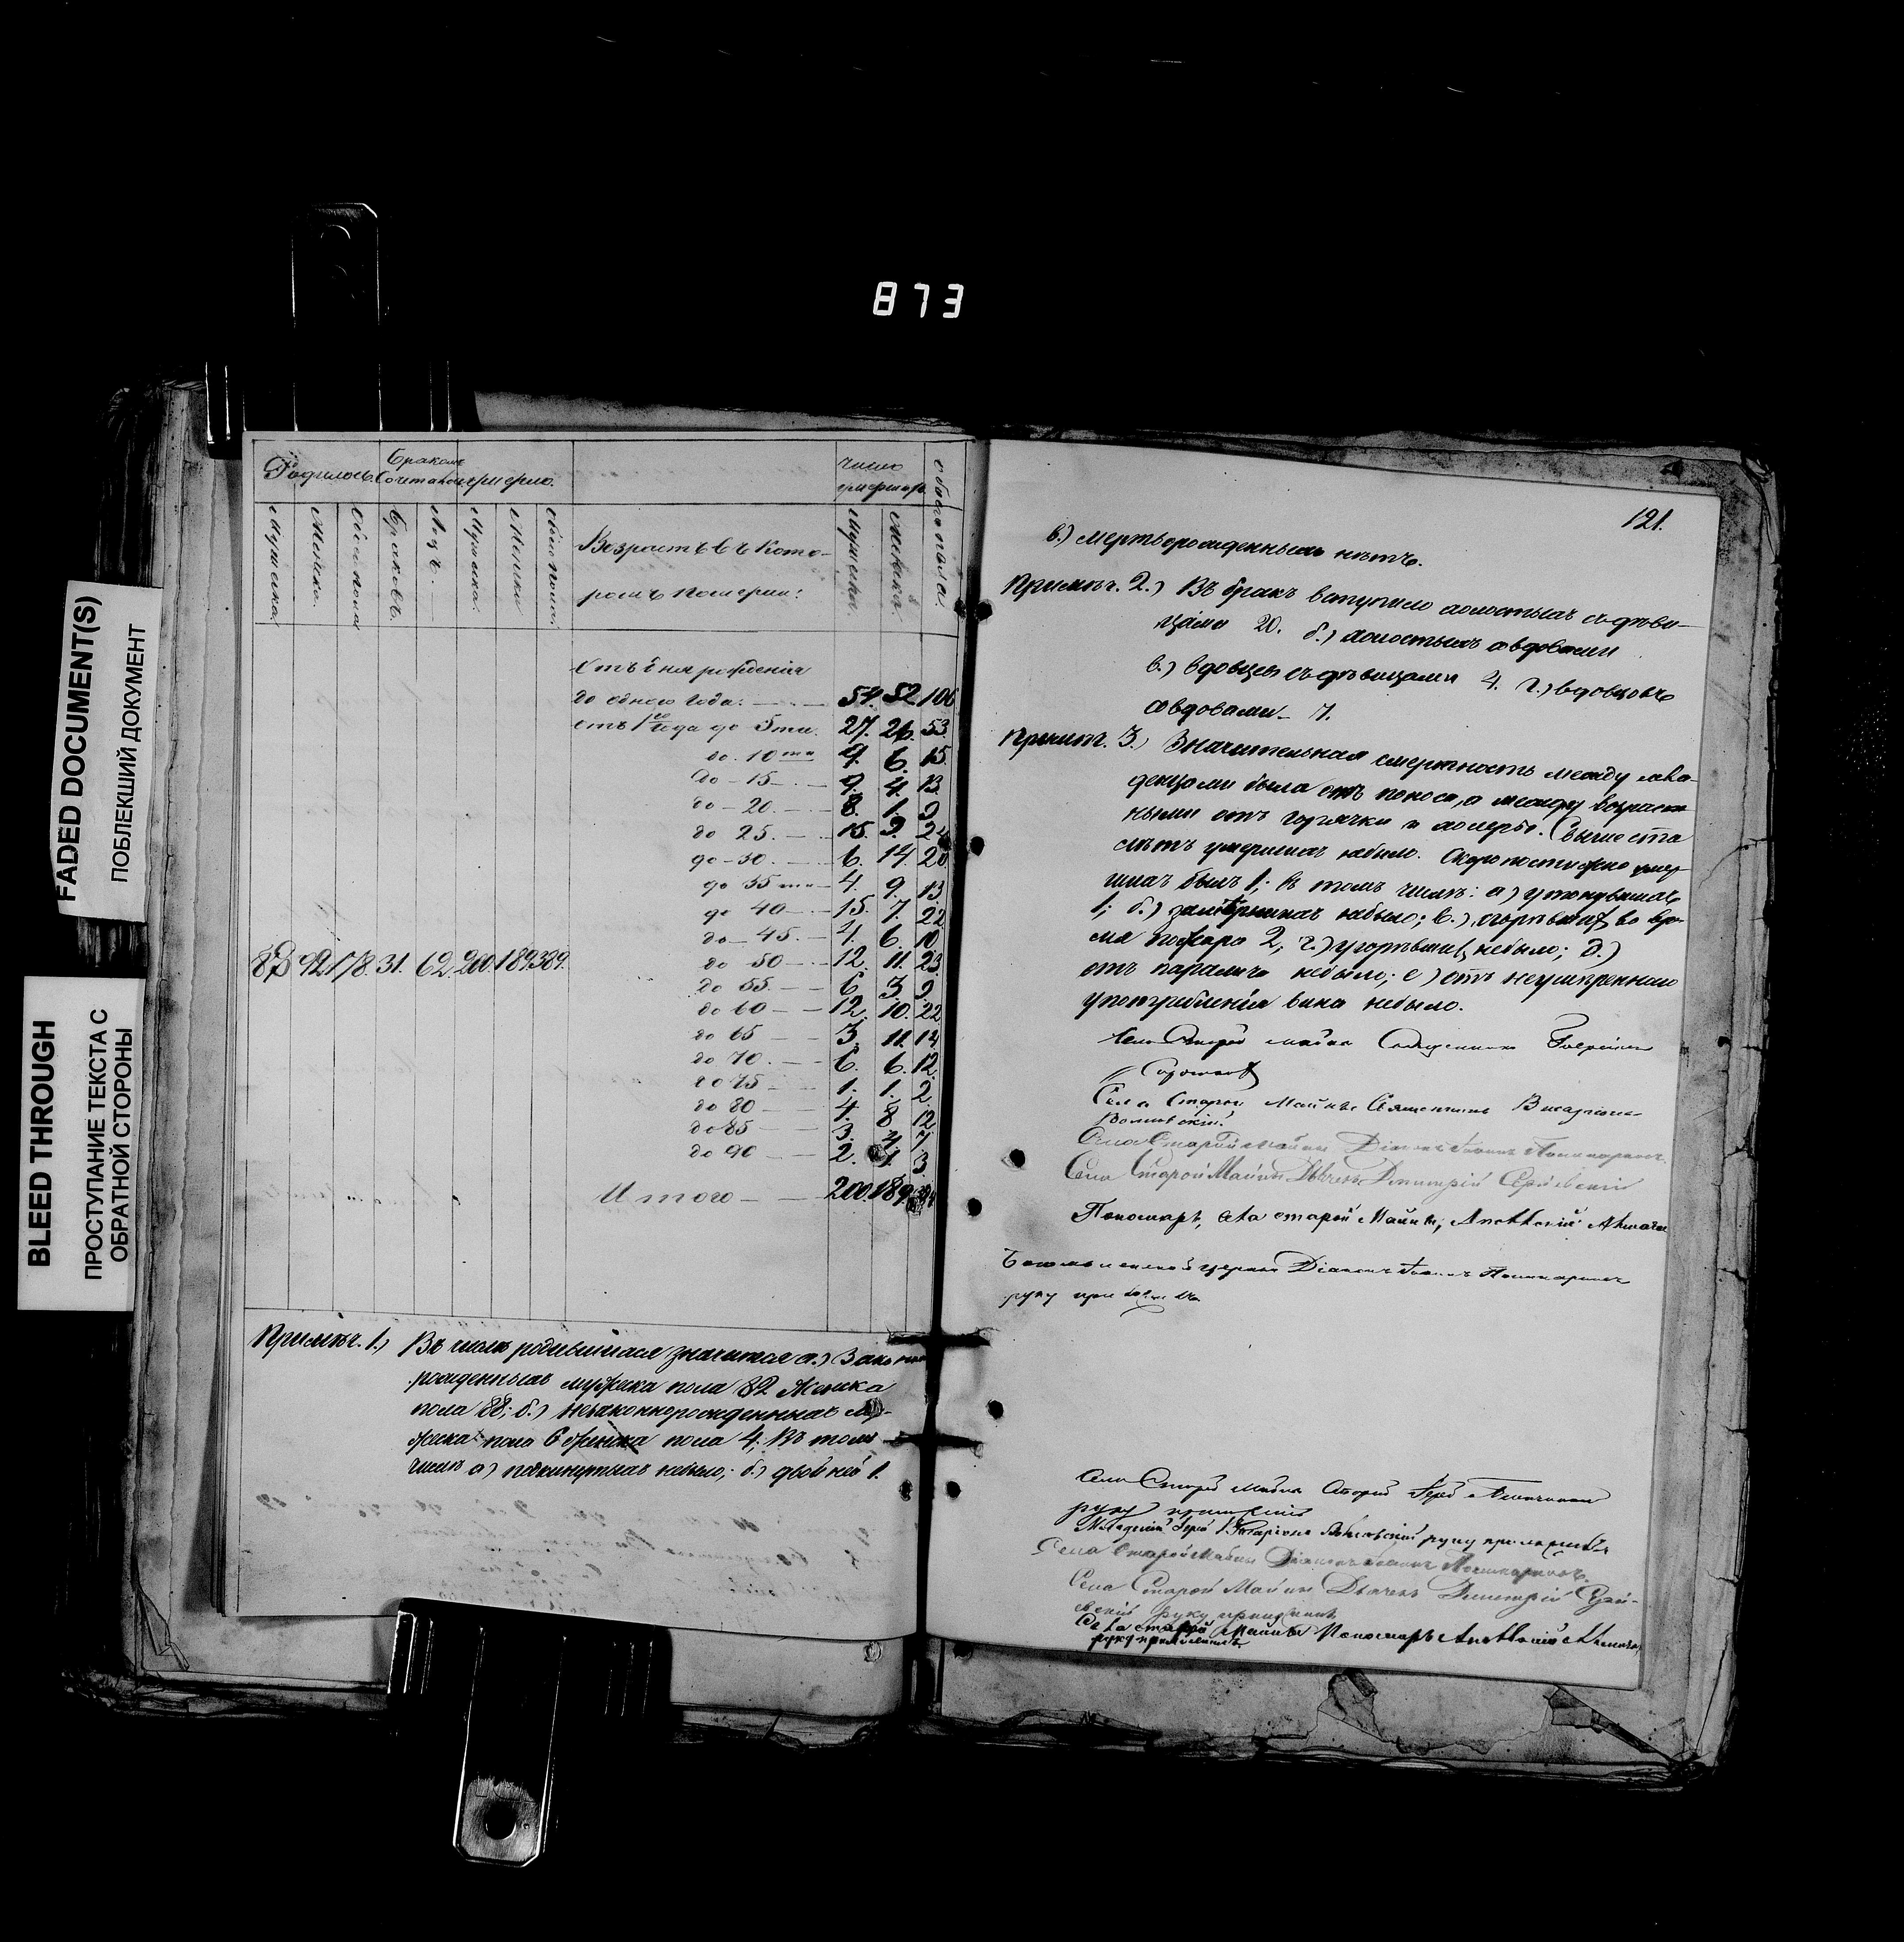 873
FADED DOCUMENT(S)
ПОБЛЕКШИЙ ДОКУМЕНТ
BLEED THROUGH
ПРОСТУПАНИЕ ТЕКСТА С
ОБРАТНОЙ СТОРОНЫ
Родилось. Бракомъ Сочталось умерло.
число умершихъ
обоего пола.
Мужеска Женска. Обоего пола Браковъ. Лицъ. Мужска. Женска Обоего пола
Возрастъ въ кото-
ромъ померли:
Мужеска Женска
Отъ дня рожденія
до одного года. 54. 52 106
отъ 1го года до 5ти. 27. 26. 53.
до 10ти 9. 6. 15.
до 15 9. 4. 13.
до 20. 8. 1. 9
до 25. 15. 9. 24
до 30. 6. 14. 20
до 35ти 4. 9. 13.
до 40 15. 7. 22
до 45. 4. 6. 10
87 92 178. 31. 62. 200. 189. 389.
до 50 12. 11. 23
до 55. 6 3. 9.
до 60 12. 10. 22
до 65 3. 11. 14.
до 70. 6. 6. 12.
до 75 1. 1. 2
до 80 4. 8 12
до 85 3. 4. 7
до 90 2. 1. 3
Итого 200. 189.
Примѣч. 1.) Въ числѣ родившихся значится а.) Законно
рожденныхъ мужеска пола 82 Женска
пола 88; б.) незаконнорожденныхъ му-
жеска пола 6 женска пола 4; Въ томъ
числѣ а) подкинутыхъ небыло; б.) двойней 1.
121.
в.) мертворожденныхъ нѣтъ.
Примѣч. 2.) Въ бракъ вступило холостыхъ съ дѣви-
цами 20. б.) холостыхъ совдовами
в.) вдовцевъ съ дѣвицами 4. г.) вдовцовъ
совдовами 7.
Примѣч. 3.) Значительная смертность между мла-
денцами была отъ поноса, а между возраст
ными отъ горячки и холеры. Свыше ста
лѣтъ умершихъ небыло. Скоропостижно умер-
шихъ былъ 1; въ томъ числѣ: а) утонувшихъ
1; б.) замерзшихъ небыло; в.) сгорѣвшихъ во вре-
мя пожара 2, г.) угорѣвшихъ небыло; д.)
отъ паралича небыло; е) отъ неумѣреннаго
употребленія вина небыло.
Села Старой Майны Священникъ
Села Старой Майны Священникъ Виссаріонъ
Села Старой Майны Діаконъ Іоаннъ
Села Старой Майны Дьячекъ Димитрій Сергіевскій
Пономарь, села старой Майны, Аполлоній
Богоявленской церкви Діаконъ Іоаннъ
руку приложилъ
Села Старой Майны
руку приложилъ
руку приложилъ
Села Старой Майны Діаконъ Іоаннъ
Села Старой Майны Дьячекъ Димитрій Сергі-
евскій руку приложилъ
Села старой Майны Пономарь Аполлоній
руку приложилъ